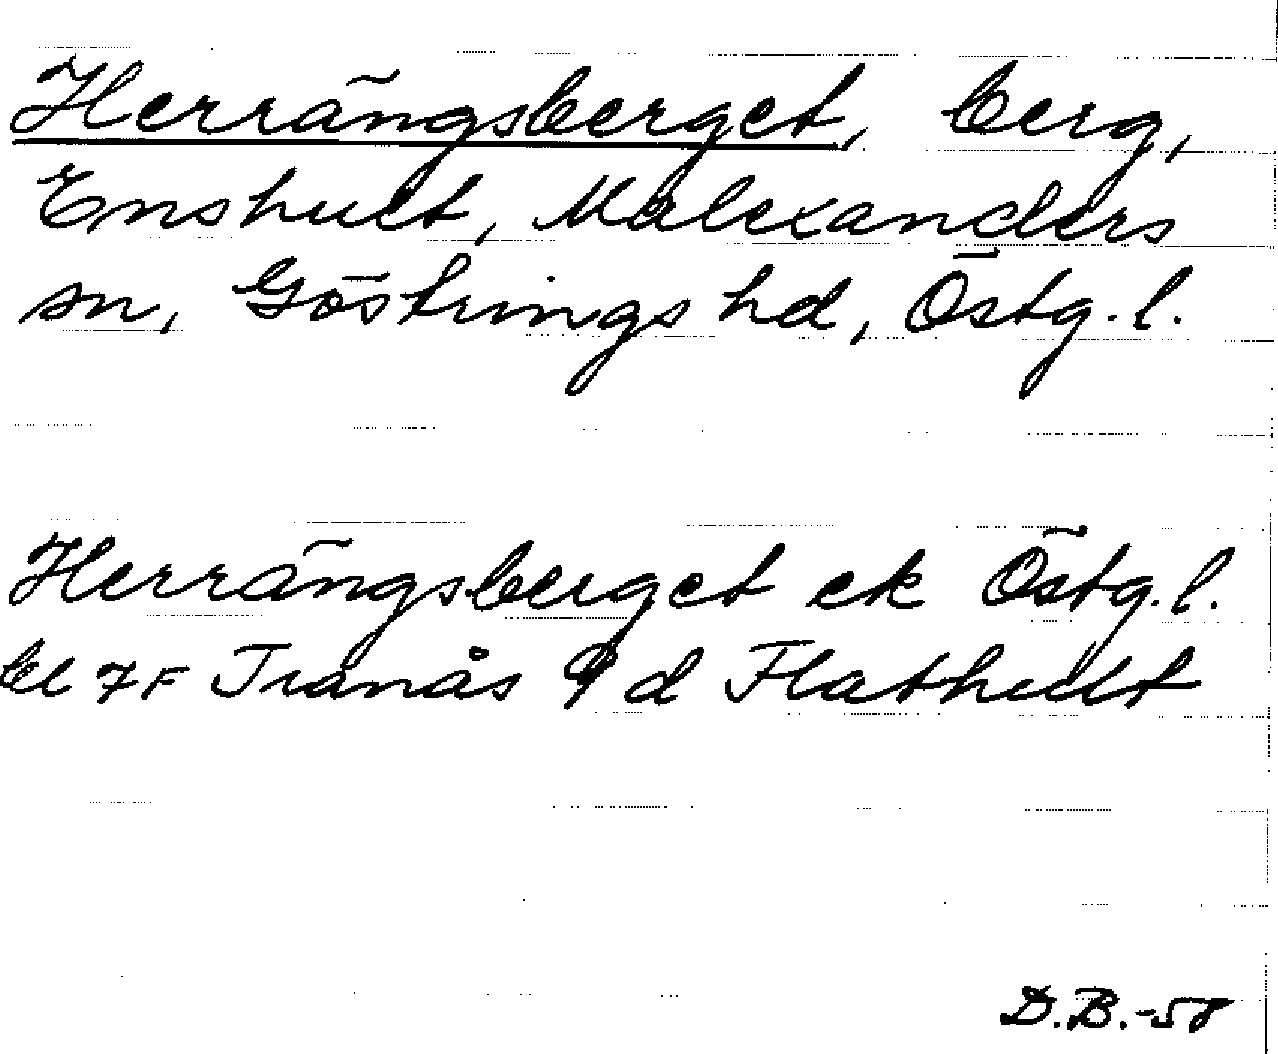 Herrängsberget, berg,
Enshult, Malexanders
sn, Göstrings hd, Östg. l.
Herrängsberget ek Östg. l.
bl 7F Tranås 9 d Flathult
D.B.-58